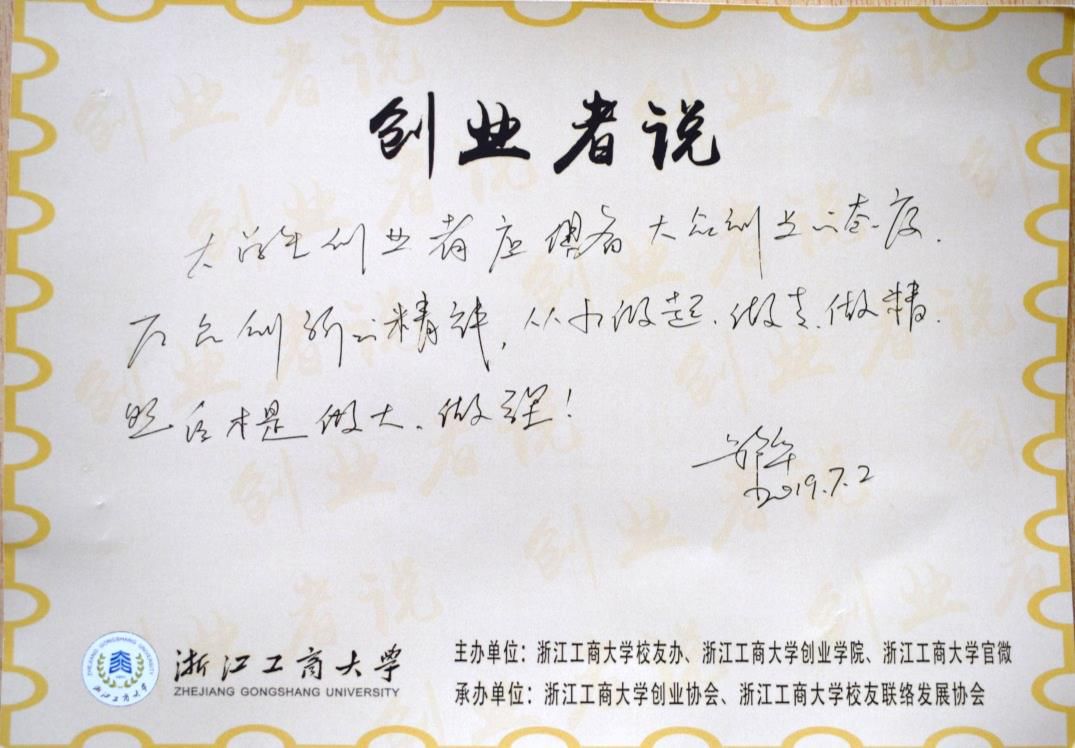 创业者说
大学生创业者应具备大众创业的态度.
万众创新的精神, 从小做起. 做专. 做精.
然后才是做大. 做强!
2019.7.2
ZHEJIANG GONGSHANG UNIVERSITY
浙江工商大学
浙江工商大学
ZHEJIANG GONGSHANG UNIVERSITY
主办单位：浙江工商大学校友办、浙江工商大学创业学院、浙江工商大学官微
承办单位：浙江工商大学创业协会、浙江工商大学校友联络发展协会